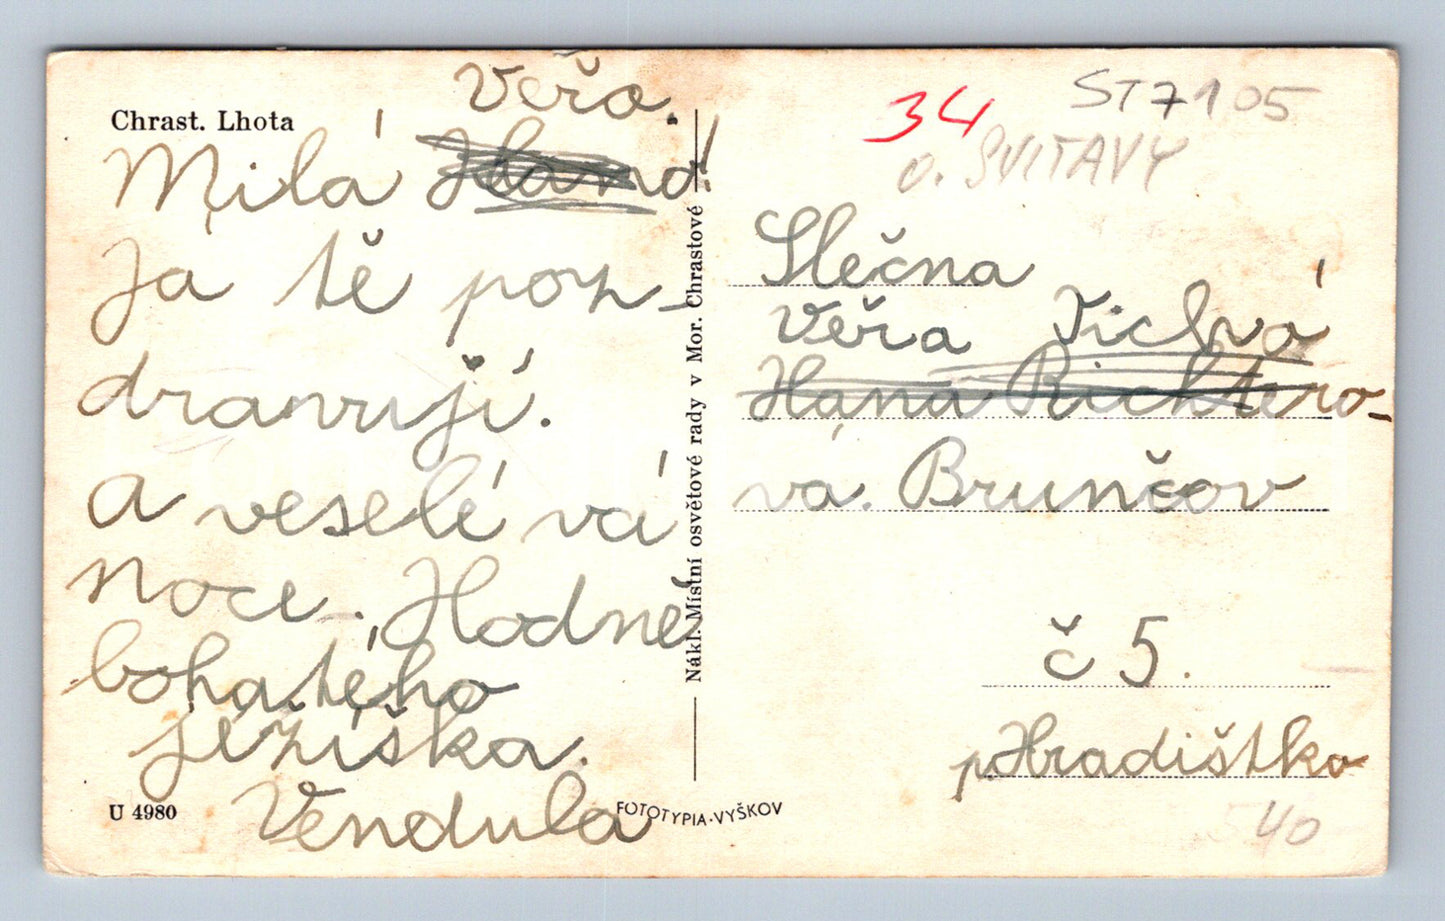 Chrast. Lhota
Věro.
Milá Hano!
Ja tě poz-
dravují.
a veselé vá
noce. Hodně
bohatého
ježíška.
Vendula
U 4980
FOTOTYPIA-VYŠKOV
Nákl. Místní osvětové rady v Mor. Chrastové
34
ST7105
o. SVITAVY
Slečna
Věra Tichá
Hana Richtero-
vá. Brunčov
č 5.
p. Hradištko
40